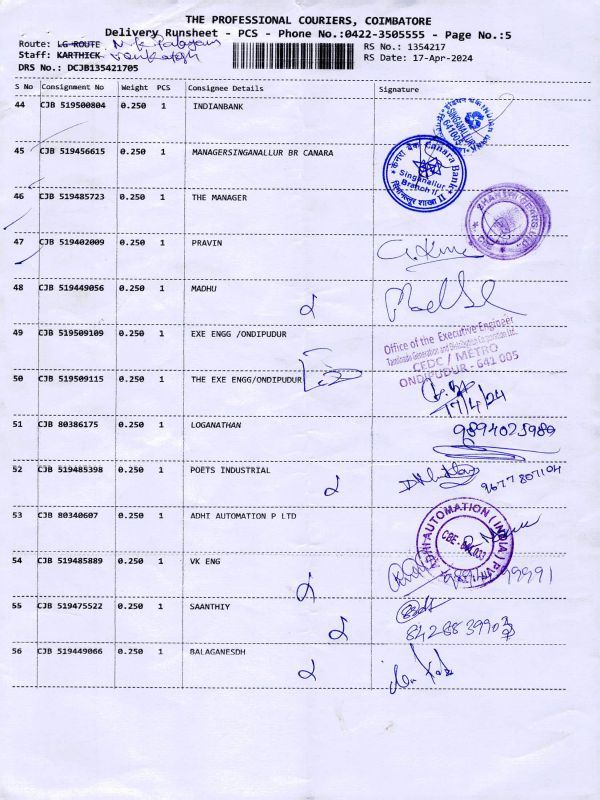 THE PROFESSIONAL COURIERS, COIMBATORE
Delivery Runsheet - PCS - Phone No.:0422-3505555 - Page No.:5
Route: LG-ROUTE RS No.: 1354217
Staff: KARTHICK Venkatesh RS Date: 17-Apr-2024
DRS No.: DCJB135421705
S No Consignment No Weight PCS Consignee Details Signature
44 CJB 519500804 0.250 1 INDIANBANK
SINGANALLUR
641005
45 CJB 519456615 0.250 1 MANAGERSINGANALLUR BR CANARA
केनरा बैंक Canara Bank
Singanallur
Branch II
सिंगानल्लूर शाखा II
46 CJB 519485723 0.250 1 THE MANAGER
47 CJB 519402009 0.250 1 PRAVIN
48 CJB 519449056 0.250 1 MADHU
49 CJB 519509109 0.250 1 EXE ENGG /ONDIPUDUR
Office of the Executive Engineer
Tamilnadu Generation and Distribution Corporation Ltd.,
CEDC / METRO
ONDIPUDUR - 641 005
50 CJB 519509115 0.250 1 THE EXE ENGG/ONDIPUDUR
17/4/24
51 CJB 80386175 0.250 1 LOGANATHAN 9894025989
52 CJB 519485398 0.250 1 POETS INDUSTRIAL 9677807104
53 CJB 80340607 0.250 1 ADHI AUTOMATION P LTD
ADHI AUTOMATION (INDIA) PVT LTD
54 CJB 519485889 0.250 1 VK ENG
55 CJB 519475522 0.250 1 SAANTHIY
56 CJB 519449066 0.250 1 BALAGANESDH